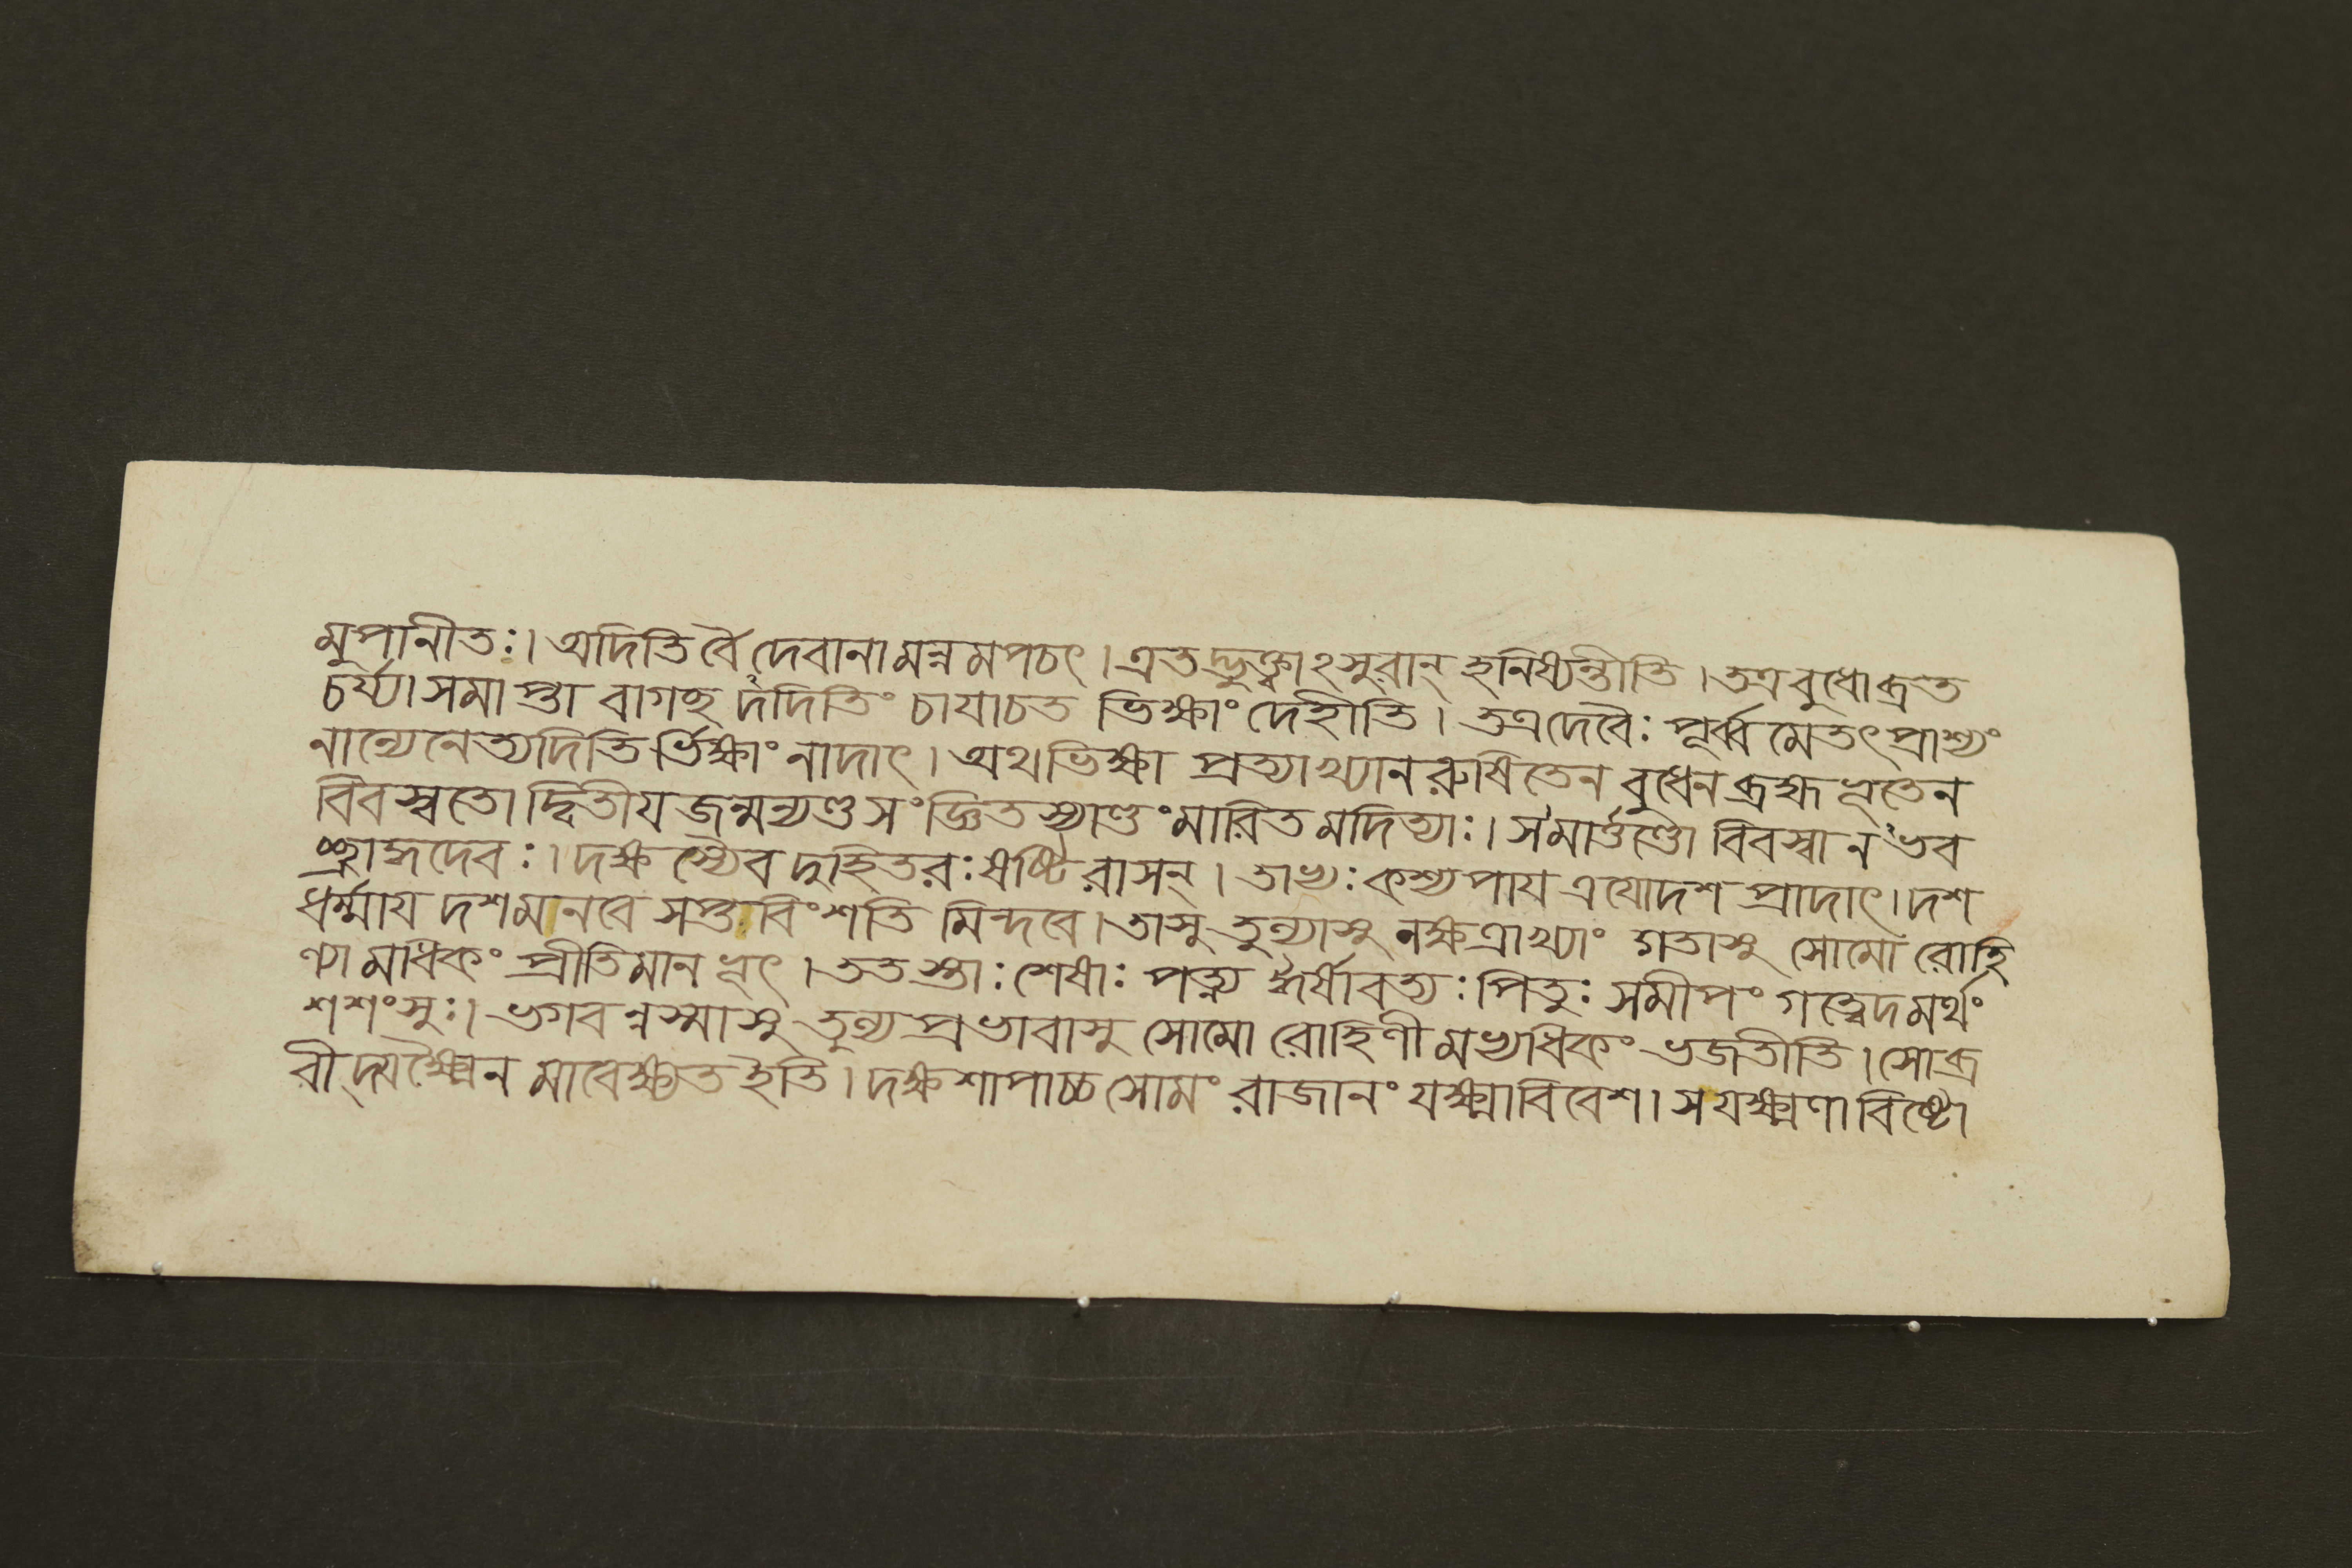 মুপানীতঃ। অদিতির্বৈ দেবানামন্নমপচৎ। এতদ্ভুক্ত্বাঽসুরান্ হনিষ্যন্তীতি। তত্র বুধো ব্রত
চর্য্যা সমাপ্তা বাগচ্ছদদিতিং চাযাচত ভিক্ষাং দেহীতি। তত্র দেবৈঃ পূর্ব্বমেতৎ প্রাশ্যং
নান্যেনেত্যদিতির্ভিক্ষাং নাদাৎ। অথ ভিক্ষা প্রত্যাখ্যানরুষিতেন বুধেন ব্রহ্মভূতেন
বিবস্বতো দ্বিতীয জন্মন্যণ্ডসংজ্ঞিতস্যাণ্ডং মারিতমদিত্যাঃ। স মার্ত্তণ্ডো বিবস্বানভব
চ্ছ্রাদ্ধদেবঃ। দক্ষস্যৈব দুহিতরঃ ষষ্টিরাসন্। তাভ্যঃ কশ্যপায ত্রযোদশ প্রাদাৎ। দশ
ধর্ম্মায দশ মনবে সপ্তাবিংশতিমিন্দবে। তাসু তুল্যাসু নক্ষত্রাখ্যাং গতাসু সোমো রোহি
ণ্যামধিকং প্রীতিমানভূৎ। ততস্তাঃ শেষাঃ পত্ন্য ঈর্ষাবত্যঃ পিতুঃ সমীপং গত্বেদমর্থং
শশংসুঃ। ভগবন্নস্মাসু তুল্যপ্রভাবাসু সোমো রোহিণীমভ্যধিকং ভজতীতি। সোব্র
বীদ্যক্ষ্মৈনমাবেক্ষ্যত ইতি। দক্ষশাপাচ্চ সোমং রাজানং যক্ষ্মাবিবেশ। স যক্ষ্মণাবিষ্টো